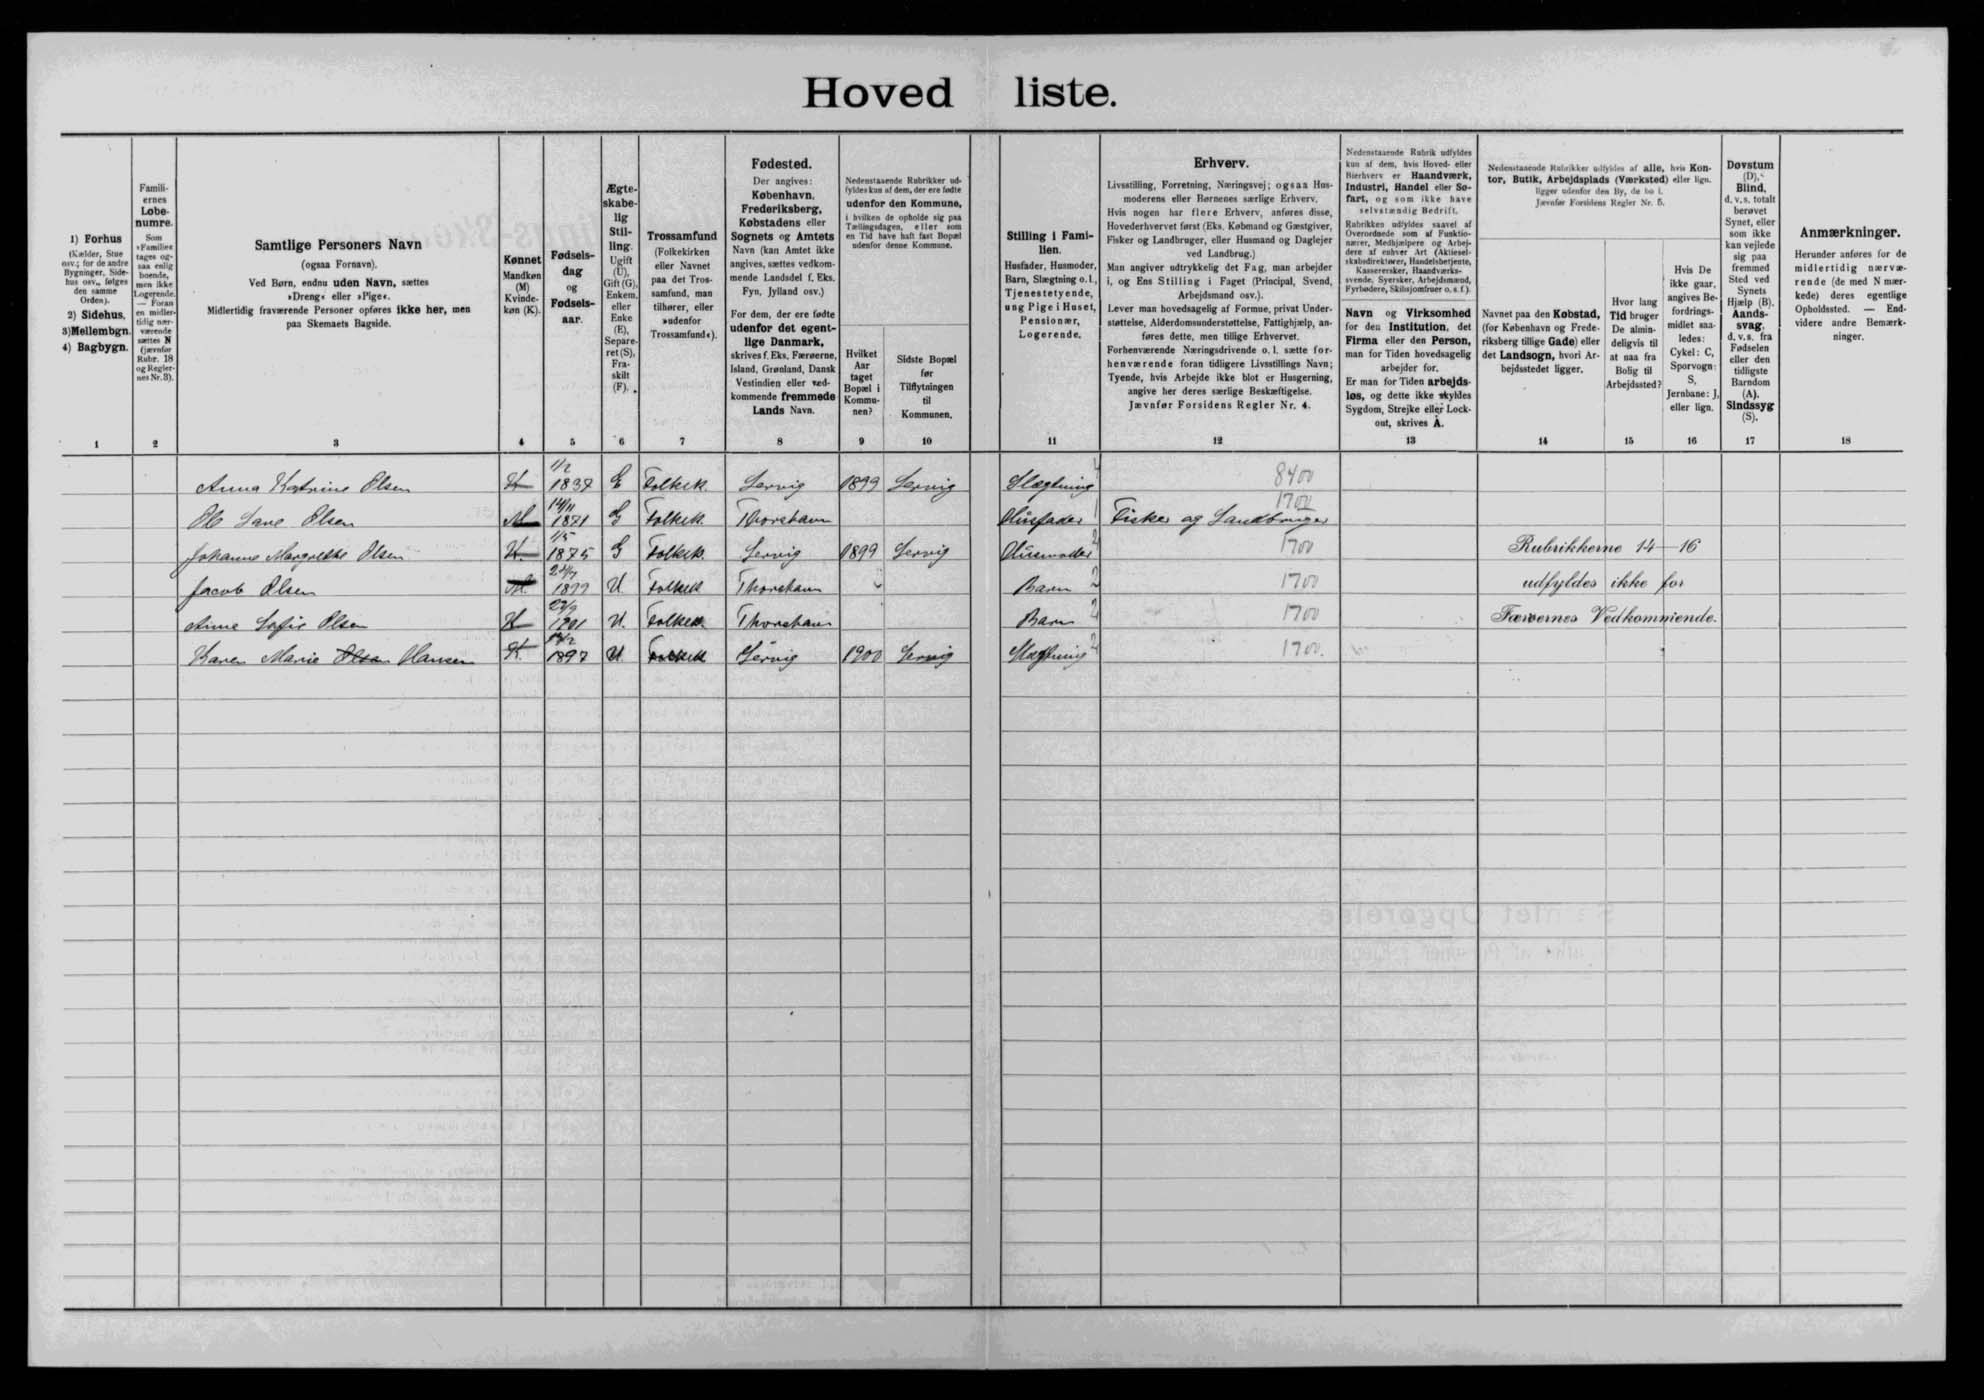 Hoved liste.
1) Forhus
(Kælder, Stue
osv.; for de andre
Bygninger, Side-
hus osv., følges
den samme
Orden).
2) Sidehus,
3) Mellembgn.
4) Bagbygn.
1
Famili-
ernes
Løbe-
numre.
Som
»Familie«
tages og-
saa enlig
boende,
men ikke
Logerende.
— Foran
en midler-
tidig nær-
værende
sættes N
(jævnfør
Rubr. 18
og Regler-
nes Nr. 3).
2
Samtlige Personers Navn
(ogsaa Fornavn).
Ved Børn, endnu uden Navn, sættes
»Dreng« eller »Pige«.
Midlertidig fraværende Personer opføres ikke her, men
paa Skemaets Bagside.
3
Kønnet
Mandkøn
(M)
Kvinde-
køn (K).
4
Fødsels-
dag
og
Fødsels-
aar.
5
Ægte-
skabe-
lig
Stil-
ling.
Ugift
(U),
Gift (G),
Enkem.
eller
Enke
(E),
Separe-
ret (S),
Fra-
skilt
(F).
6
Trossamfund
(Folkekirken
eller Navnet
paa det Tros-
samfund, man
tilhører, eller
»udenfor
Trossamfund«).
7
Fødested.
Der angives:
København,
Frederiksberg,
Købstadens eller
Sognets og Amtets
Navn (kan Amtet ikke
angives, sættes vedkom-
mende Landsdel f. Eks.
Fyn, Jylland osv.)
For dem, der ere fødte
udenfor det egent-
lige Danmark,
skrives f. Eks. Færøerne,
Island, Grønland, Dansk
Vestindien eller ved-
kommende fremmede
Lands Navn.
8
Nedenstaaende Rubrikker ud-
fyldes kun af dem, der ere fødte
udenfor den Kommune,
i hvilken de opholde sig paa
Tællingsdagen, eller som
en Tid have haft fast Bopæl
udenfor denne Kommune.
Hvilket
Aar
taget
Bopæl i
Kommu-
nen?
9
Sidste Bopæl
før
Tilflytningen
til
Kommunen.
10
Stilling i Fami-
lien.
Husfader, Husmoder,
Barn, Slægtning o. l.,
Tjenestetyende,
ung Pige i Huset,
Pensionær,
Logerende.
11
Erhverv.
Livsstilling, Forretning, Næringsvej; ogsaa Hus-
moderens eller Børnenes særlige Erhverv.
Hvis nogen har flere Erhverv, anføres disse,
Hovederhvervet først (Eks. Købmand og Gæstgiver,
Fisker og Landbruger, eller Husmand og Daglejer
ved Landbrug.)
Man angiver udtrykkelig det Fag, man arbejder
i, og Ens Stilling i Faget (Principal, Svend,
Arbejdsmand osv.).
Lever man hovedsagelig af Formue, privat Under-
støttelse, Alderdomsunderstøttelse, Fattighjælp, an-
føres dette, men tillige Erhvervet.
Forhenværende Næringsdrivende o. l. sætte for-
henværende foran tidligere Livsstillings Navn;
Tyende, hvis Arbejde ikke blot er Husgerning,
angive her deres særlige Beskæftigelse.
Jævnfør Forsidens Regler Nr. 4.
12
Nedenstaaende Rubrik udfyldes
kun af dem, hvis Hoved- eller
Bierhverv er Haandværk,
Industri, Handel eller Sø-
fart, og som ikke have
selvstændig Bedrift.
Rubrikken udfyldes saavel af
Overordnede som af Funktio-
nærer, Medhjælpere og Arbej-
dere af enhver Art (Aktiesel-
skabsdirektører, Handelsbetjente,
Kasserersker, Haandværks-
svende, Syersker, Arbejdsmænd,
Fyrbødere, Skibsjomfruer o. s. f.).
Navn og Virksomhed
for den Institution, det
Firma eller den Person,
man for Tiden hovedsagelig
arbejder for.
Er man for Tiden arbejds-
løs, og dette ikke skyldes
Sygdom, Strejke eller Lock-
out, skrives A.
13
Nedenstaaende Rubrikker udfyldes af alle, hvis Kon-
tor, Butik, Arbejdsplads (Værksted) eller lign.
ligger udenfor den By, de bo i.
Jævnfør Forsidens Regler Nr. 5.
Navnet paa den Købstad,
(for København og Frede-
riksberg tillige Gade) eller
det Landsogn, hvori Ar-
bejdsstedet ligger.
14
Hvor lang
Tid bruger
De almin-
deligvis til
at naa fra
Bolig til
Arbejdssted?
15
Hvis De
ikke gaar,
angives Be-
fordrings-
midlet saa-
ledes:
Cykel: C,
Sporvogn:
S,
Jernbane: J,
eller lign.
16
Døvstum
(D),
Blind,
d. v. s. totalt
berøvet
Synet, eller
som ikke
kan vejlede
sig paa
fremmed
Sted ved
Synets
Hjælp (B).
Aands-
svag,
d. v. s. fra
Fødselen
eller den
tidligste
Barndom
(A).
Sindssyg
(S).
17
Anmærkninger.
Herunder anføres for de
midlertidig nærvæ-
rende (de med N mær-
kede) deres egentlige
Opholdssted. — End-
videre andre Bemærk-
ninger.
18
Anna Katrine Olsen K 1/2 1837 E Folkek. Lervig 1899 Lervig Slægtning 8400
Ole Olsen M 14/11 1871 G Folkek. Thorshavn Husfader 1 Fisker og Landbruger 1700
Johanne Margrethe Olsen K 1/5 1875 G Folkek. Lervig 1899 Lervig Husmoder 2 1700
Jacob Olsen M. 1899 U. Folkek Thorshavn Barn 2 1700
Anna Sofie Olsen K 1901 U. Folkek. Thorshavn Barn 2 1700
Karen Marie Olsen Hansen K. 1897 U Folkek Lervig 1900 Lervig Slægtning 2 1700.
Rubrikkerne 14—16
udfyldes ikke for
Færøernes Vedkommende.